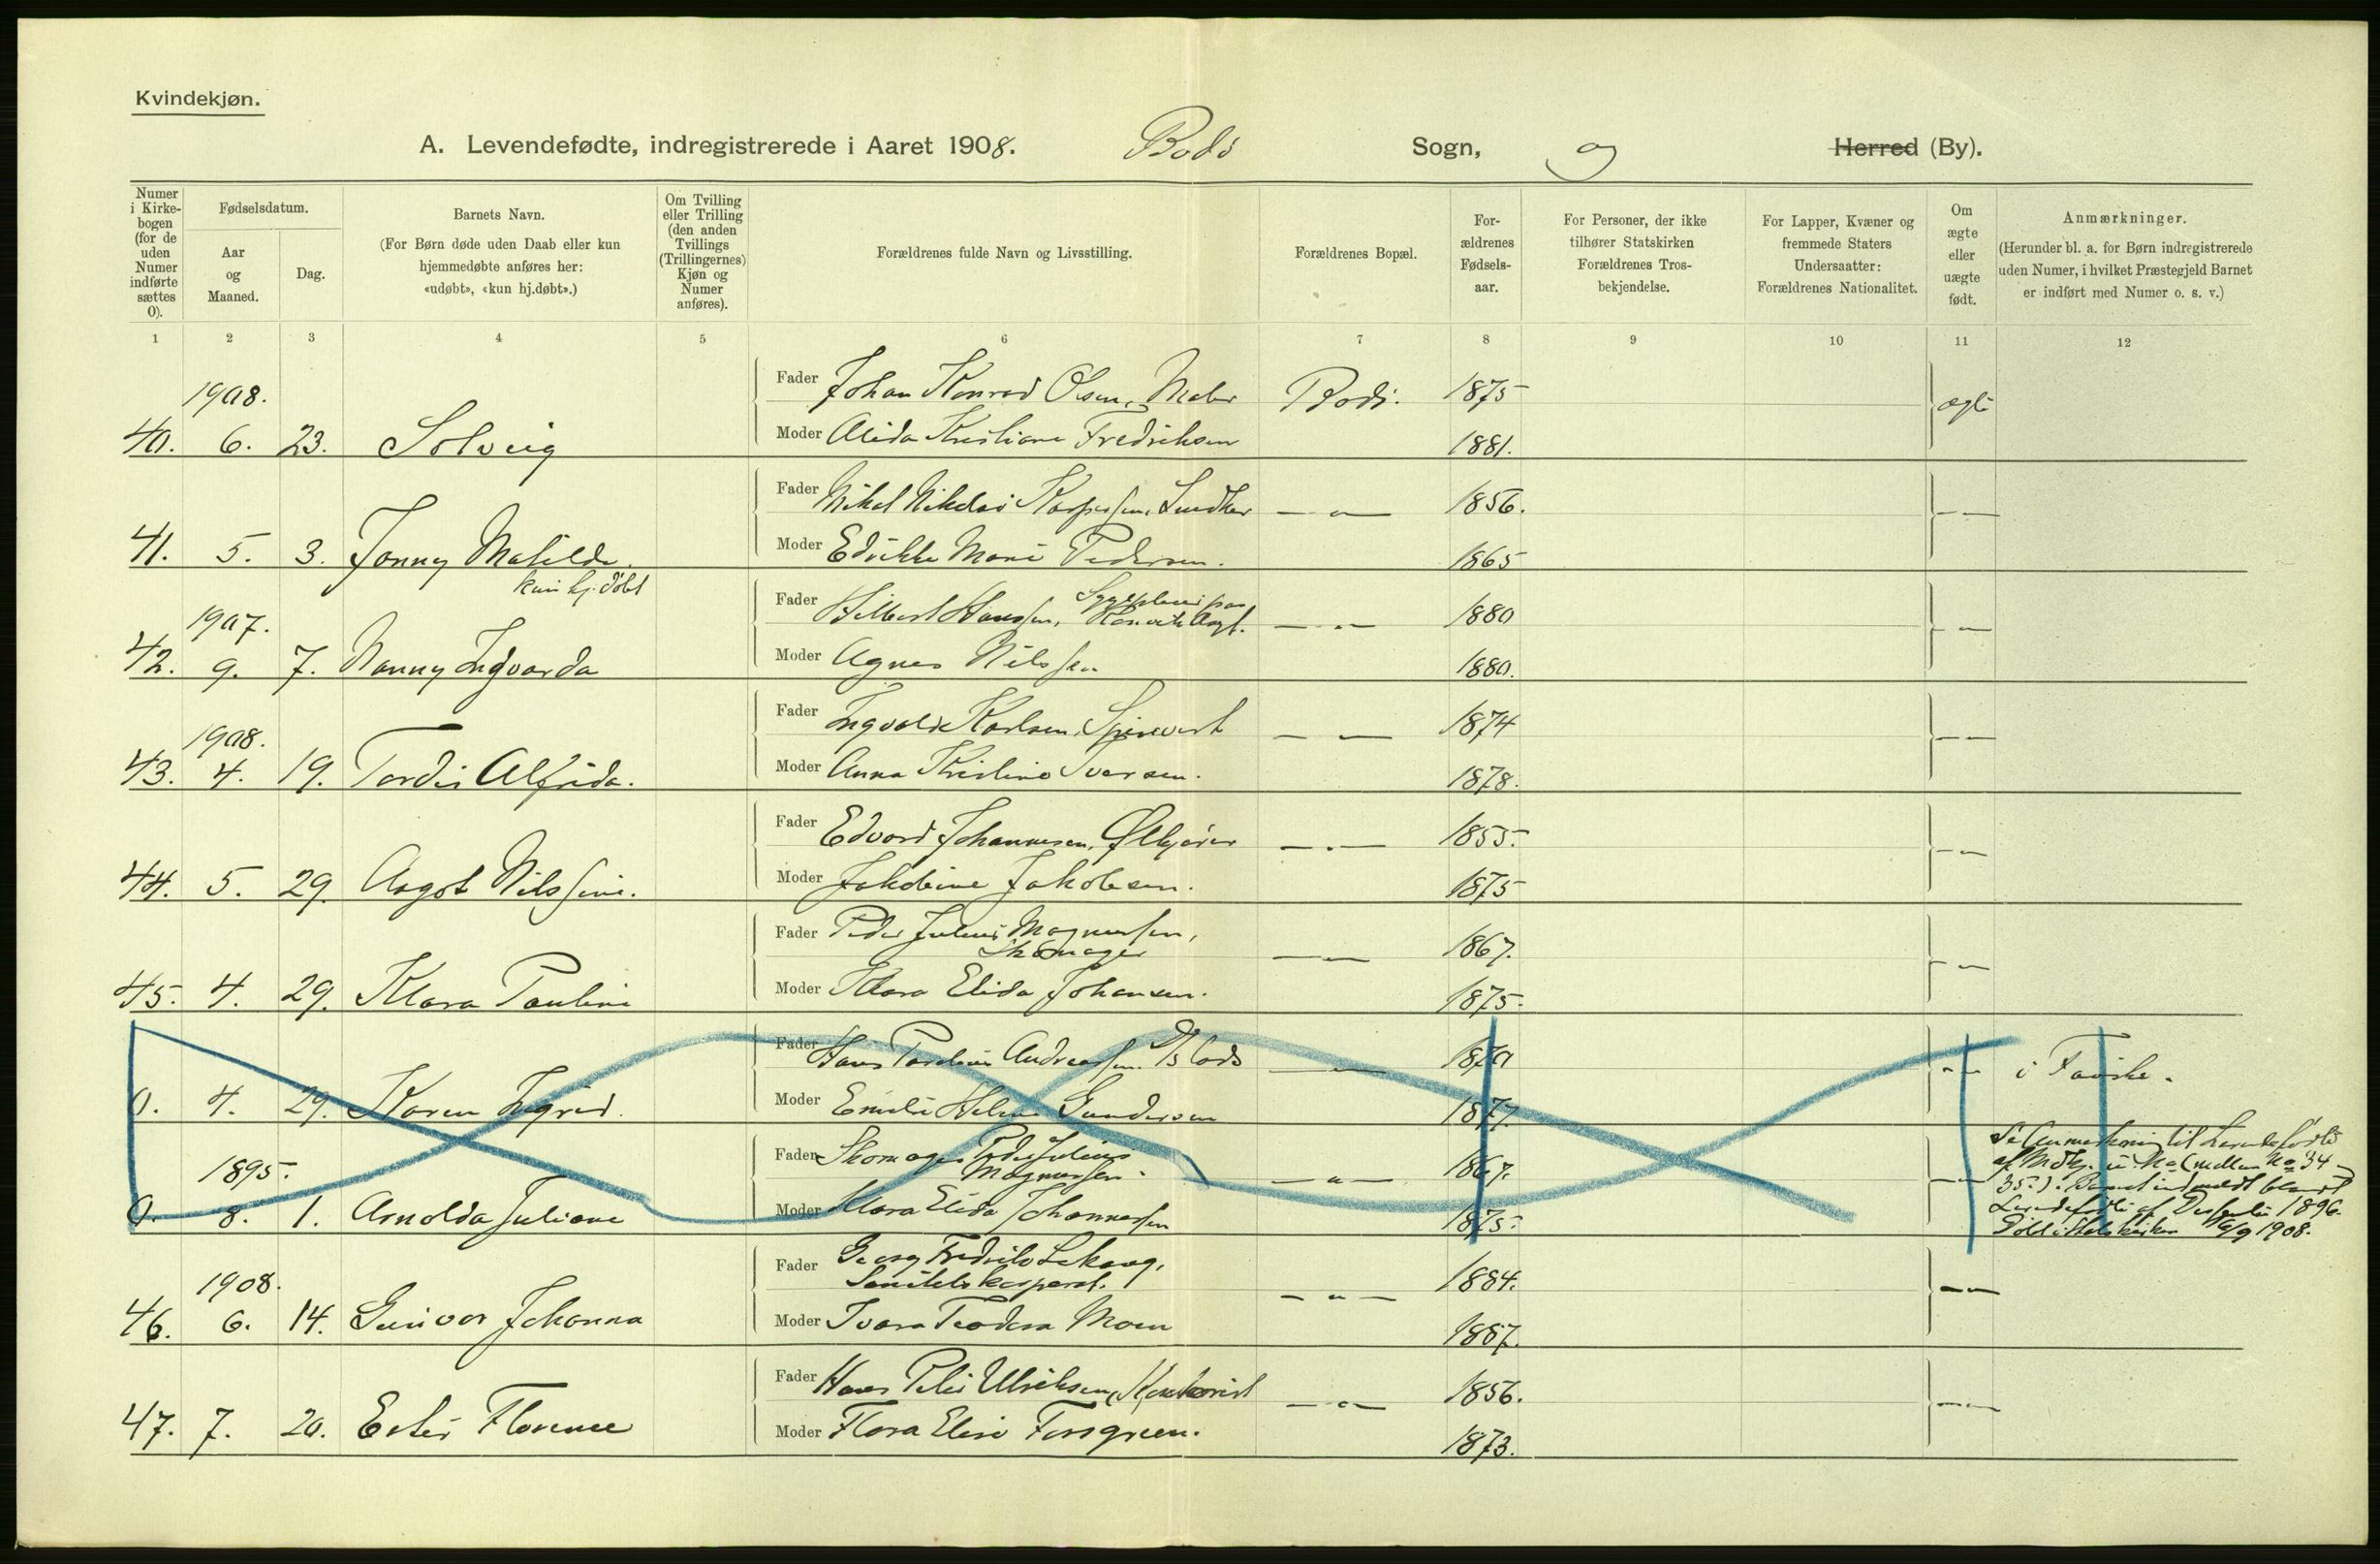 Kvindekjøn.
A. Levendefødte, indregistrerede i Aaret 1908. Bodø Sogn, og Herred (By).
Numer i Kirkebogen (for de uden Numer indførte sættes 0).
Fødselsdatum.
Aar og Maaned.
Dag.
Barnets Navn.
(For Børn døde uden Daab eller kun hjemmedøbte anføres her: «udøbt», «kun hj.døbt».)
Om Tvilling eller Trilling (den anden Tvillings (Trillingernes) Kjøn og Numer anføres).
Forældrenes fulde Navn og Livsstilling.
Forældrenes Bopæl.
For-ældrenes Fødsels-aar.
For Personer, der ikke tilhører Statskirken Forældrenes Tros-bekjendelse.
For Lapper, Kvæner og fremmede Staters Undersaatter: Forældrenes Nationalitet.
Om ægte eller uægte født.
Anmærkninger.
(Herunder bl. a. for Børn indregistrerede uden Numer, i hvilket Præstegjeld Barnet er indført med Numer o. s. v.)
1 2 3 4 5 6 7 8 9 10 11 12
1908.
Fader Johan Konrad Olsen, Maler Bodø. 1875 ægte
40. 6. 23. Solveig
Moder Alida Kristiane Fredriksen 1881.
Fader Mikal Nikolai Kaspersen, Snedker — " — 1856. — " —
41. 5. 3. Jenny Matilde.
Moder Edikke Marie Pedersen. 1865
kun hj. døbt
1907.
Fader Hilbert Hanssen, — " — 1880 — " —
42. 9. 7. Nanny Ingvarda
Moder Agnes Nilssen 1880.
1908.
Fader Ingvald Karlsen, — " — 1874 — " —
43. 4. 19. Tordis Alfrida.
Moder Anna Kristine Iversen. 1878.
Fader Edvard Johannesen, Ølkjører — " — 1855. — " —
44. 5. 29. Aagot Nilssine.
Moder Jakobine Jakobsen. 1875
Fader Peder Julius Magnussen,
Skomager — " — 1867. — " —
45. 4. 29. Klara Pauline
Moder Klara Elida Johansen. 1875.
Fader Hans Parelius Andreassen — " — 1870 — " — i Fauske.
0. 4. 29. Karen Ingrid.
Moder Emilie Helene Gundersen 1877.
1895.
Fader Skomager Peder Julius
Magnussen. — " — 1867. — " —
0. 8. 1. Arnolda Juliane
Moder Klara Elida Johannessen 1875.
Se Anmerkning til Levendefødte
af Mdkj. u. No (mellem No 34 –
35.). Barnet indmeldt blandt
Levendefødte af 1896.
Døbt i Statskirken 16/9 1908.
1908.
Fader Georg Fredrik Lekang,
Sanitetskorporal. — " — 1884. — " —
46. 6. 14. Gunvor Johanna
Moder Ivara Teodora Moen 1887.
Fader Hans Peter Ulriksen, Kontorist — " — 1856. — " —
47. 7. 20. Ester Florence
Moder Flora Elise Forsgreen. 1873.